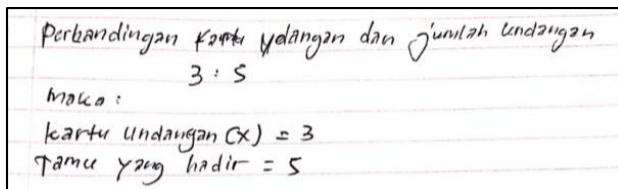 Perbandingan Kartu Undangan dan jumlah undangan
3 : 5
maka :
kartu undangan (x) = 3
Tamu yang hadir = 5